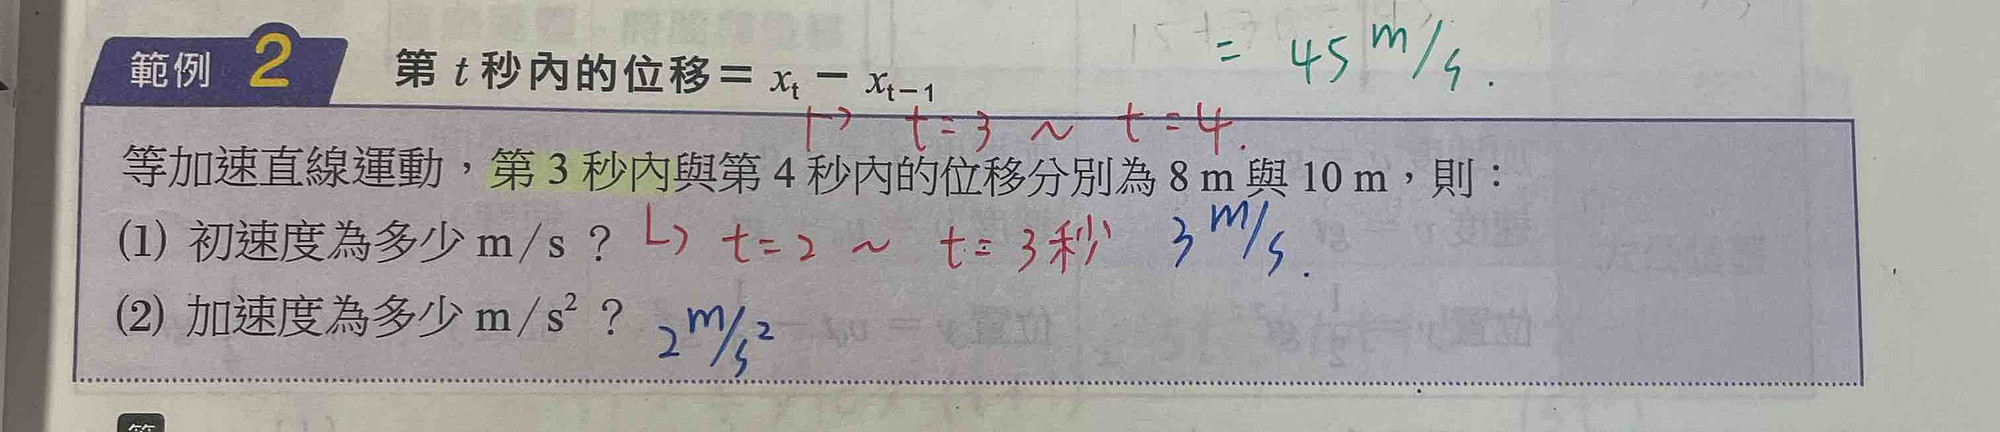 = 45 m/s.
範例 2 第 t 秒內的位移 = xₜ − xₜ₋₁
↳ t = 3 ~ t = 4.
等加速直線運動，第 3 秒內與第 4 秒內的位移分別為 8 m 與 10 m，則：
(1) 初速度為多少 m/s？ ↳ t = 2 ~ t = 3 秒 3 m/s.
(2) 加速度為多少 m/s²？ 2 m/s²